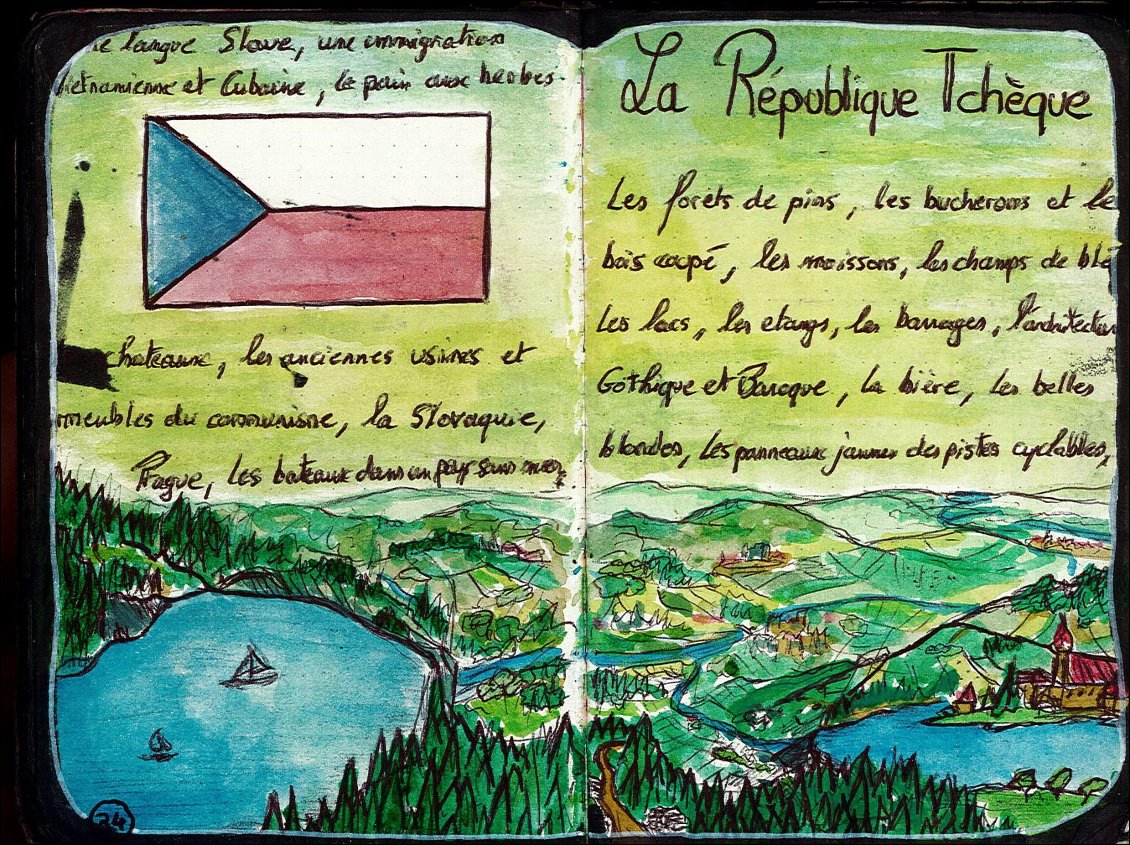 langue Slave, une immigration
et Cubaine, le pain aux herbes
chateaux, les anciennes usines et
meubles du communisme, la Slovaquie,
Prague, les bateaux dans un pays sans mer,
24
La République Tchèque
Les forêts de pins, les bucherons et le
bois coupé, les moissons, les champs de blé
Les lacs, les etangs, les barrages, l'architectur
Gothique et Baroque, la bière, les belles
blondes, les panneaux jaunes des pistes cyclables,